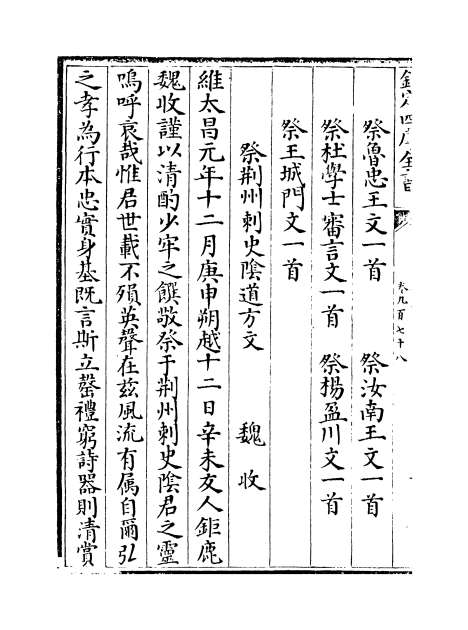 欽定四庫全書
卷九百七十八
祭魯忠王文一首　祭汝南王文一首
祭杜學士審言文一首　祭楊盈川文一首
祭王城門文一首
祭荆州刺史陰道方文　魏收
維太昌元年十二月庚申朔越十二日辛未友人鉅鹿
魏收謹以清酌少牢之饌敬祭于荆州刺史陰君之靈
嗚呼哀哉惟君世載不殞英聲在兹風流有属自爾弘
之孝為行本忠實身基既言斯立罄禮窮詩器則清賞